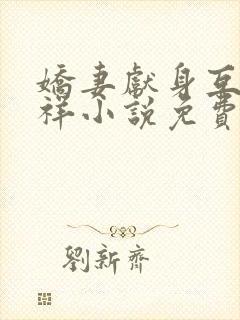 嬌妻獻身互
祥小說免費
劉新齊